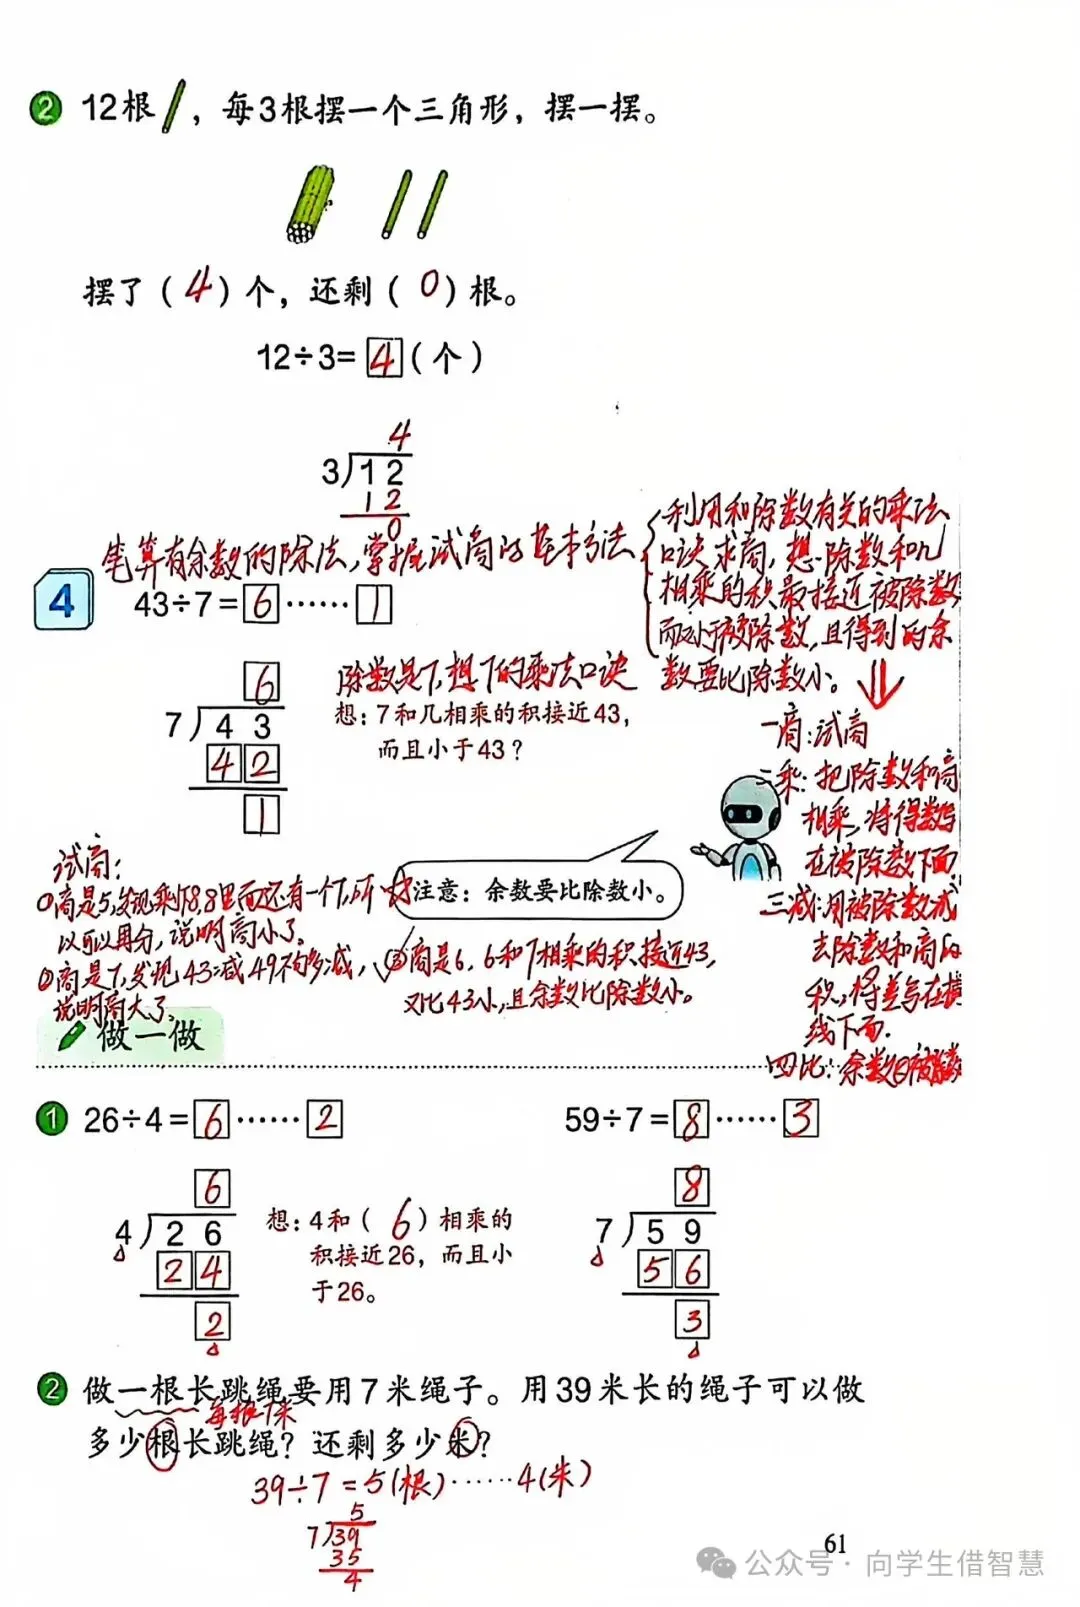 2 12根 , 每3根摆一个三角形，摆一摆。
摆了（4）个，还剩（0）根。
12÷3=4（个）
4
3)12
12
0
笔算有余数的除法，掌握试商的基本方法
利用和除数有关的乘法
口诀求商，想：除数和几
相乘的积最接近被除数
而又小于被除数，且得到的余
数要比除数小。
4 43÷7=6……1
6
7)43
42
1
除数是7，想7的乘法口诀
想：7和几相乘的积接近43，
而且小于43？
一商：试商
二乘：把除数和商
相乘，将得数写
在被除数下面
三减：用被除数减
去除数和商的
积，得差写在横
线下面.
四比：余数
注意：余数要比除数小。
试商：
①商是5，发现剩下8，8里面还有一个7，所
以可以再分，说明商小了。
②商是7，发现43减49不够减，
说明商大了。
③商是6，6和7相乘的积接近43，
又比43小，且余数比除数小。
做一做
1 26÷4=6……2
59÷7=8……3
6
4)26
24
2
想：4和（6）相乘的
积接近26，而且小
于26。
8
7)59
56
3
2 做一根长跳绳要用7米绳子。用39米长的绳子可以做
每根7米
多少根长跳绳？还剩多少米？
39÷7=5(根)……4(米)
5
7)39
35
4
61
公众号·向学生借智慧